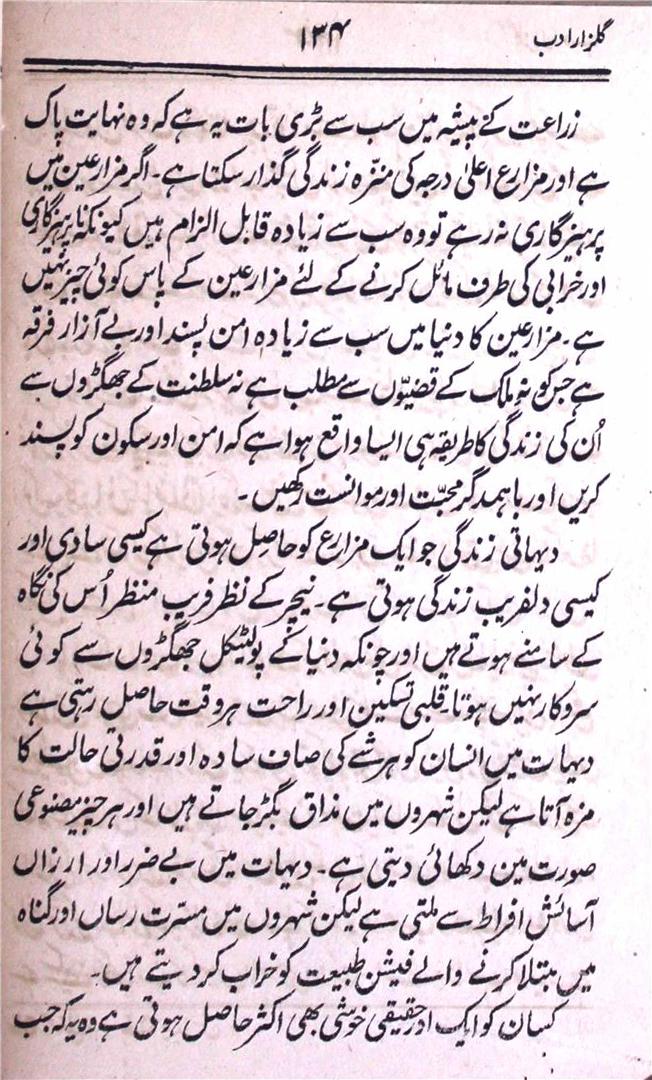 گلزار ادب
۱۳۴
زراعت کے پیشہ میں سب سے بڑی بات یہ ہے کہ وہ نہایت پاک
ہے اور مزارع اعلیٰ درجہ کی منزّہ زندگی گذار سکتا ہے۔ اگر مزارعین میں
پرہیزگاری نہ رہے تو وہ سب سے زیادہ قابل الزام ہیں کیونکہ ناپرہیزگاری
اور خرابی کی طرف مائل کرنے کے لئے مزارعین کے پاس کوئی چیز نہیں
ہے۔ مزارعین کا دنیا میں سب سے زیادہ امن پسند اور بے آزار فرقہ
ہے جس کو نہ ملک کے قضیّوں سے مطلب ہے نہ سلطنت کے جھگڑوں سے
اُن کی زندگی کا طریقہ ہی ایسا واقع ہوا ہے کہ امن اور سکون کو پسند
کریں اور باہمدگر محبّت اور موانست رکھیں۔
دیہاتی زندگی جو ایک مزارع کو حاصل ہوتی ہے کیسی سادی اور
کیسی دلفریب زندگی ہوتی ہے۔ نیچر کے نظر فریب منظر اُس کی نگاہ
کے سامنے ہوتے ہیں اور چونکہ دنیا کے پولٹیکل جھگڑوں سے کوئی
سروکار نہیں ہوتا۔ قلبی تسکین اور راحت ہر وقت حاصل رہتی ہے
دیہات میں انسان کو ہر شے کی صاف سادہ اور قدرتی حالت کا
مزہ آتا ہے لیکن شہروں میں مذاق بگڑ جاتے ہیں اور ہر چیز مصنوعی
صورت مین دکھائی دیتی ہے۔ دیہات میں بے ضرر اور ارزاں
آسائش افراط سے ملتی ہے لیکن شہروں میں مسرّت رساں اور گناہ
میں مبتلا کرنے والے فیشن طبیعت کو خراب کر دیتے ہیں۔
کسان کو ایک اور حقیقی خوشی بھی اکثر حاصل ہوتی ہے وہ یہ کہ جب